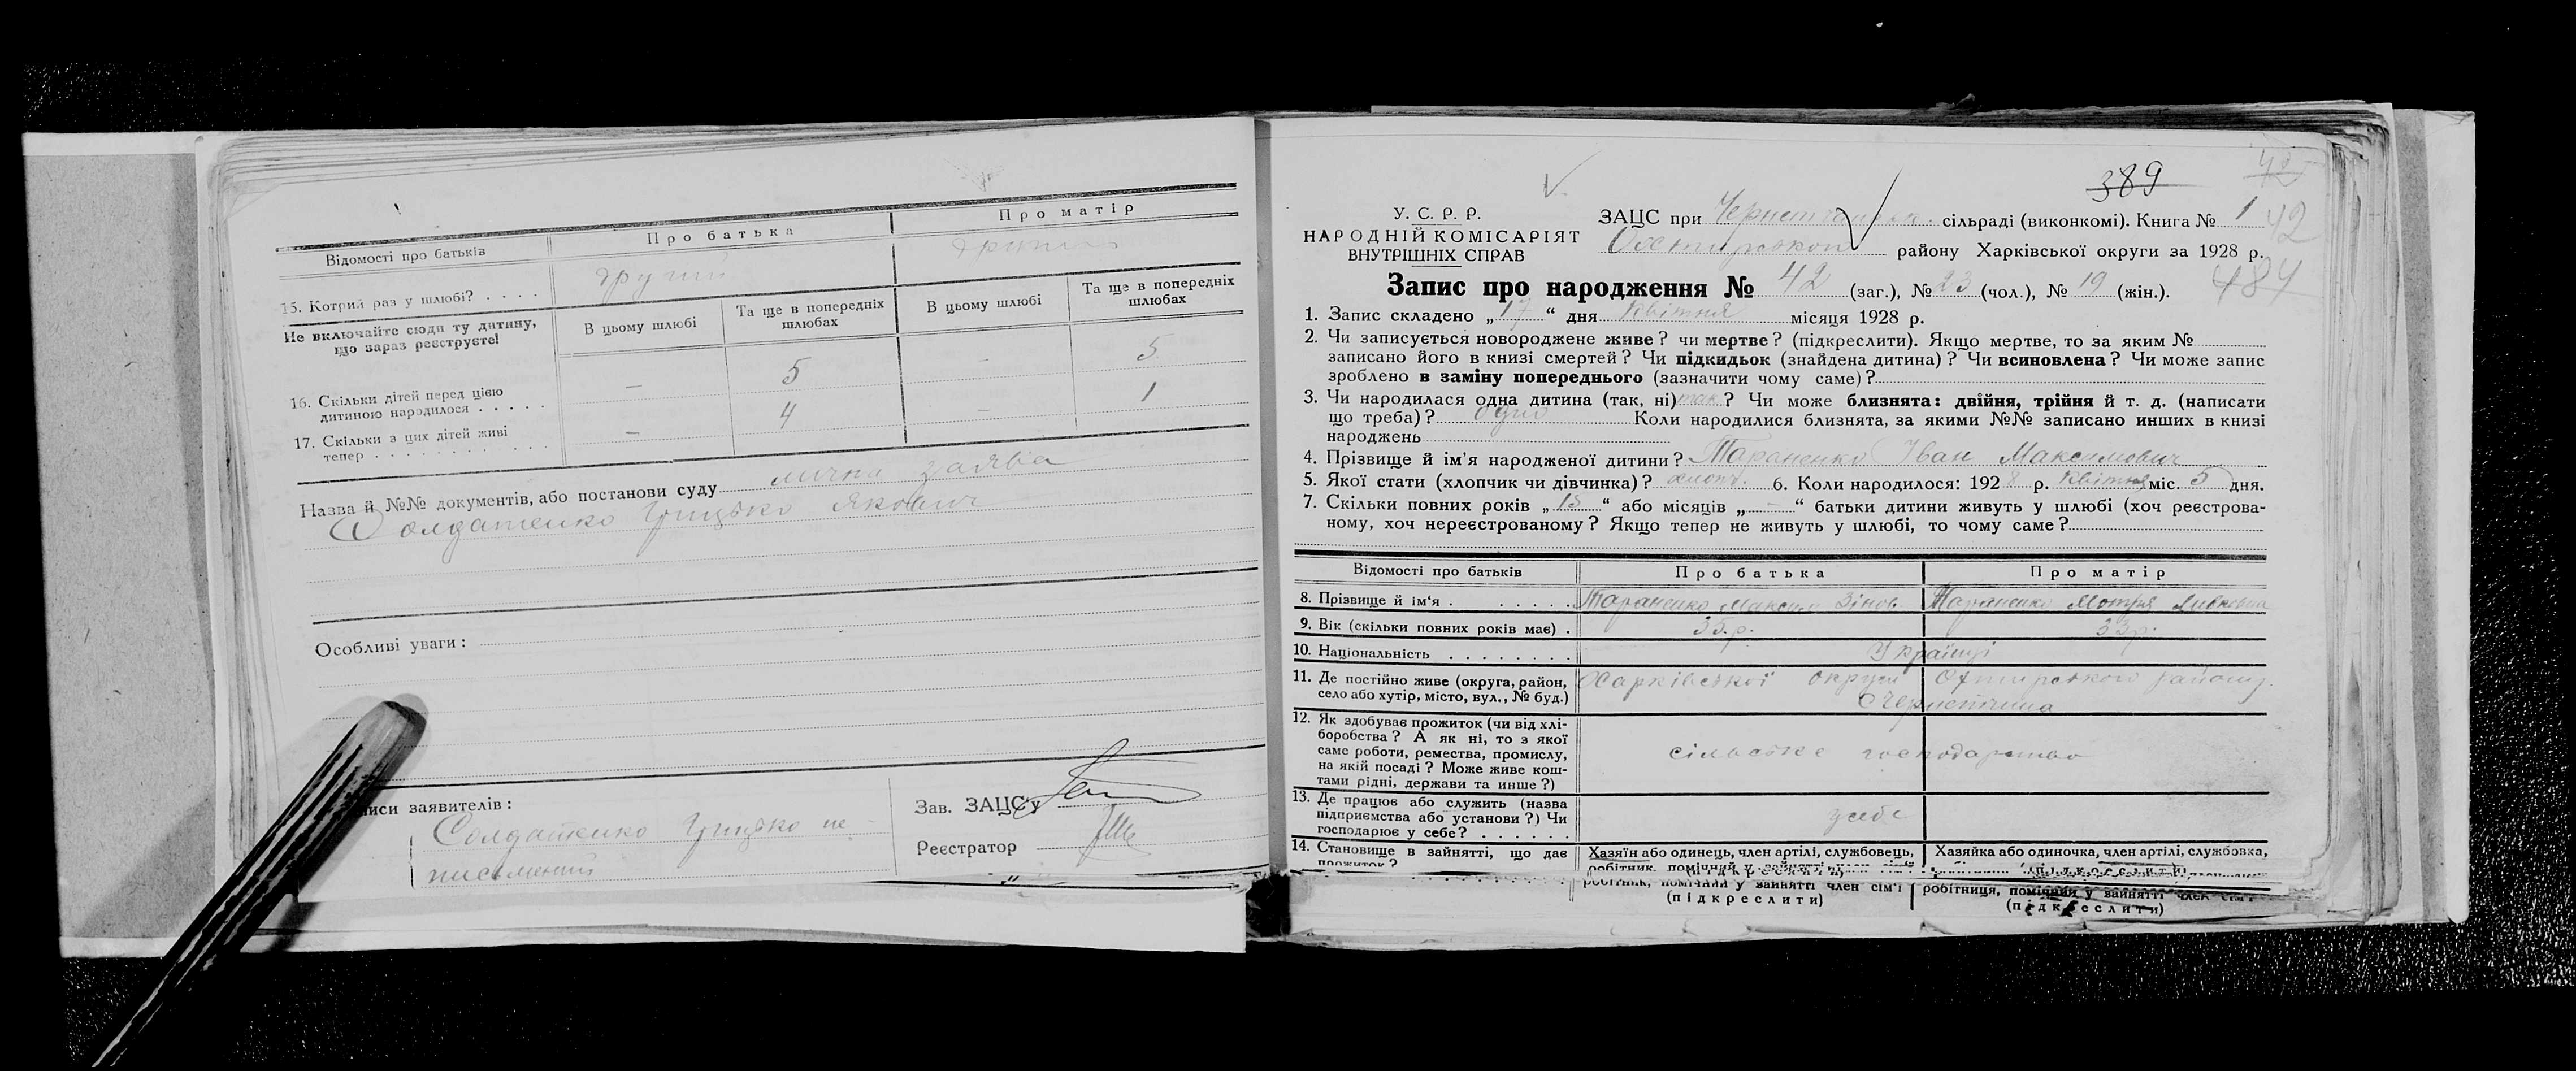 Відомості про батьків
Про батька
Про матір
15. Котрий раз у шлюбі? . . . .
другий
Не включайте сюди ту дитину, що зараз реєструєте!
В цьому шлюбі
Та ще в попередніх шлюбах
В цьому шлюбі
Та ще в попередніх шлюбах
16. Скільки дітей перед цією
дитиною народилося . . . . .
—
5
—
5
17. Скільки з цих дітей живі
тепер . . . . . . . . . . .
—
4
—
1
Назва й №№ документів, або постанови суду лична заява
Солдатенко Грицько Якович
Особливі уваги:
писи заявителів:
Солдатенко Грицько не-
письменний
Зав. ЗАЦС'у
Реєстратор
389
42
У. С. Р. Р.
НАРОДНІЙ КОМІСАРІЯТ
ВНУТРІШНІХ СПРАВ
ЗАЦС при сільраді (виконкомі). Книга № 1 42
району Харківської округи за 1928 р.
484
Запис про народження № 42 (заг.), № 23 (чол.), № 19 (жін.).
1. Запис складено „17“ дня Квітня місяця 1928 р.
2. Чи записується новороджене живе? чи мертве? (підкреслити). Якщо мертве, то за яким №
записано його в книзі смертей? Чи підкидьок (знайдена дитина)? Чи всиновлена? Чи може запис
зроблено в заміну попереднього (зазначити чому саме)?
3. Чи народилася одна дитина (так, ні) так? Чи може близнята: двійня, трійня й т. д. (написати
що треба)? одно Коли народилися близнята, за якими №№ записано инших в книзі
народжень
4. Прізвище й ім'я народженої дитини? Тараненко Іван Максимович
5. Якої стати (хлопчик чи дівчинка)? хлопч. 6. Коли народилося: 1928 р. Квітня міс. 5 дня.
7. Скільки повних років „15“ або місяців „—“ батьки дитини живуть у шлюбі (хоч реєстрова-
ному, хоч нереєстрованому? Якщо тепер не живуть у шлюбі, то чому саме?
Відомості про батьків
Про батька
Про матір
8. Прізвище й ім'я . . . . . . .
Тараненко Максим Зінов.
Тараненко Мотря
9. Вік (скільки повних років має) .
35 р.
33 р.
10. Національність . . . . . . . .
Українці
11. Де постійно живе (округа, район,
село або хутір, місто, вул., № буд.)
Харківської округи Охтирського району
с Чернеччина
12. Як здобуває прожиток (чи від хлі-
боробства? А як ні, то з якої
саме роботи, ремества, промислу,
на якій посаді? Може живе кош-
тами рідні, держави та инше?)
сільське господарство
13. Де працює або служить (назва
підприємства або установи?) Чи
господарює у себе? . . . . . .
у себе
14. Становище в зайнятті, що дає
прожиток?
Хазяїн або одинець, член артілі, службовець,
Хазяйка або одиночка, член артілі, службовка,
робітник, помічний у зайнятті член сім'ї
(підкреслити)
робітниця, помічний у зайнятті член сім'ї
(підкреслити)